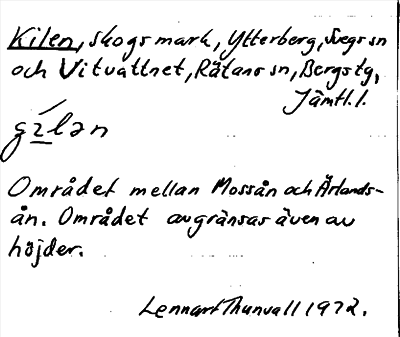 Kilen, skogsmark, Ytterberg, Svegs sn
och Vitvattnet, Rätans sn, Bergs tg,
Jämtl. l.
gílən
Området mellan Mossån och Ärlands-
ån. Området avgränsas även av
höjder.
Lennart Thunvall 1972.